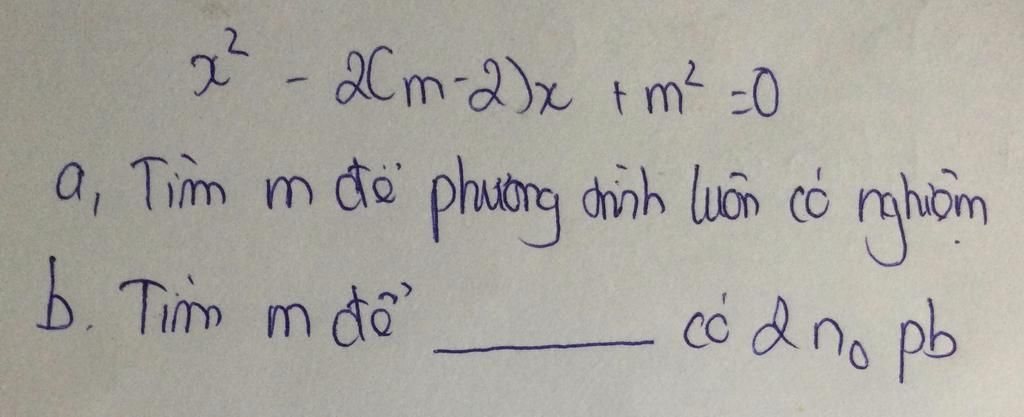 x² - 2(m-2)x + m² = 0
a, Tìm m để phương trình luôn có nghiệm
b. Tìm m để ______ có 2 n₀ pb